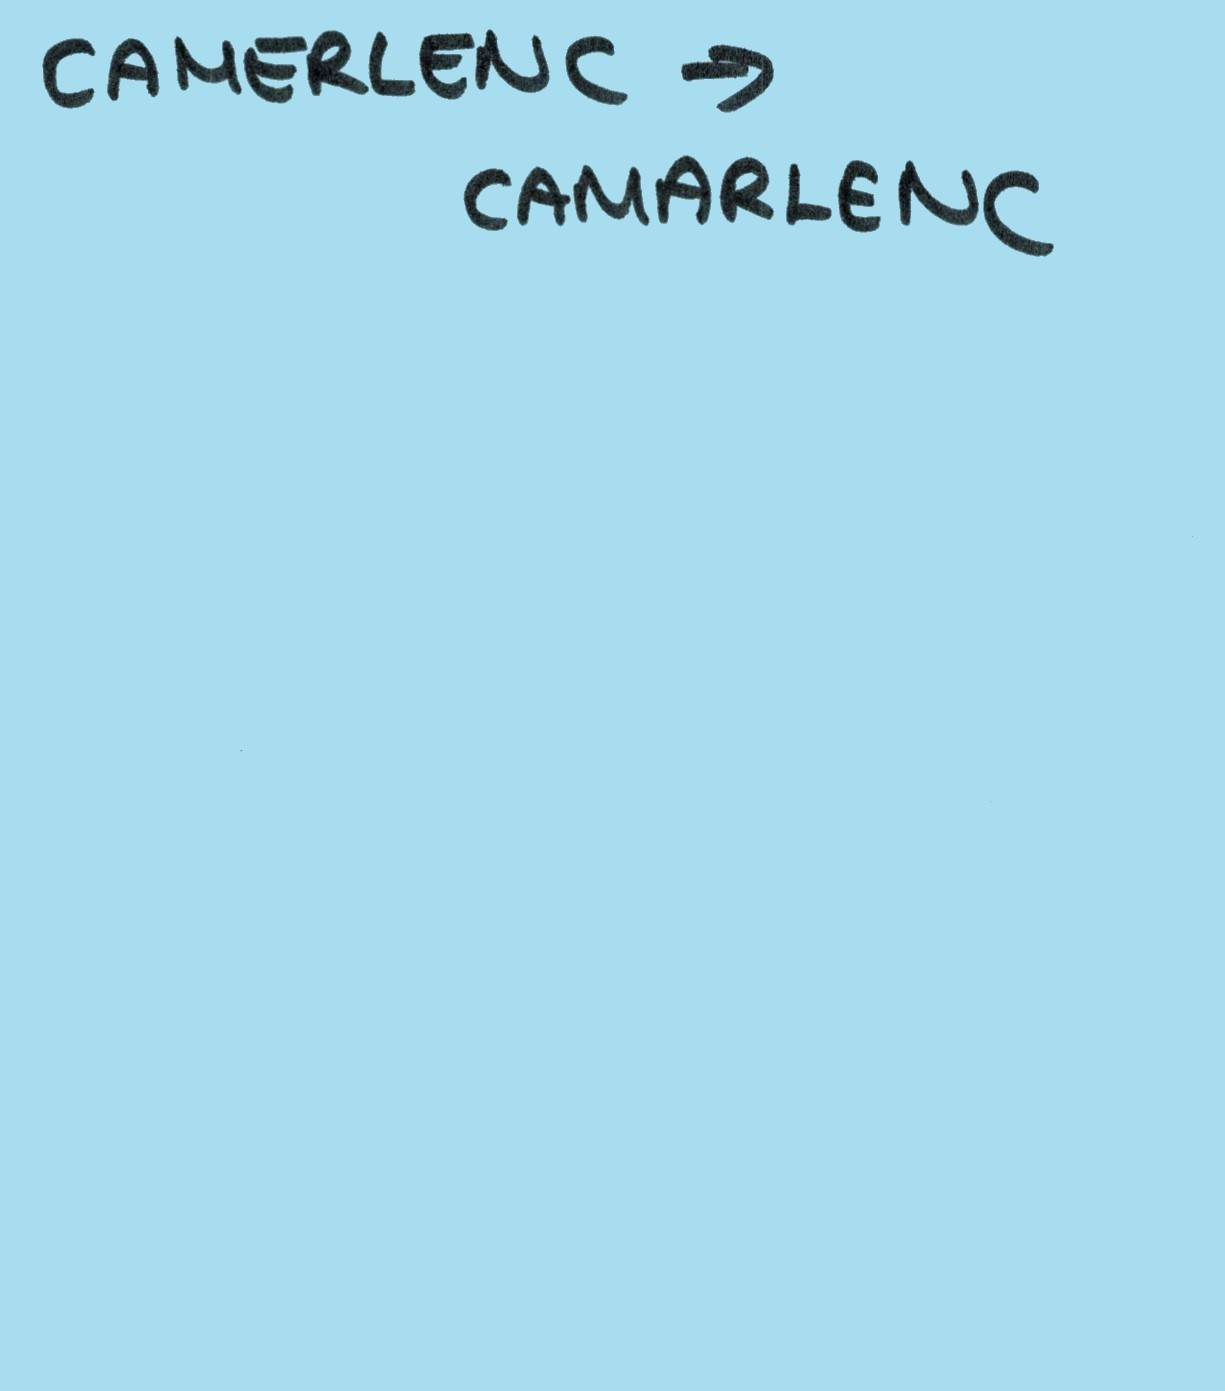 CAMERLENC →
CAMARLENC